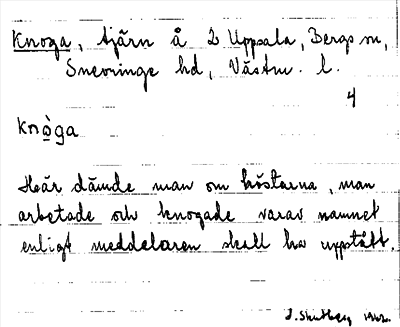 Knoga, tjärn å 2 Uppsala, Bergs sn,
Snevringe hd, Västm. l.
4
knò̱ga
Här dämde man om höstarna, man
arbetade och knogade varav namnet
enligt meddelaren skall ha uppstått.
1942.